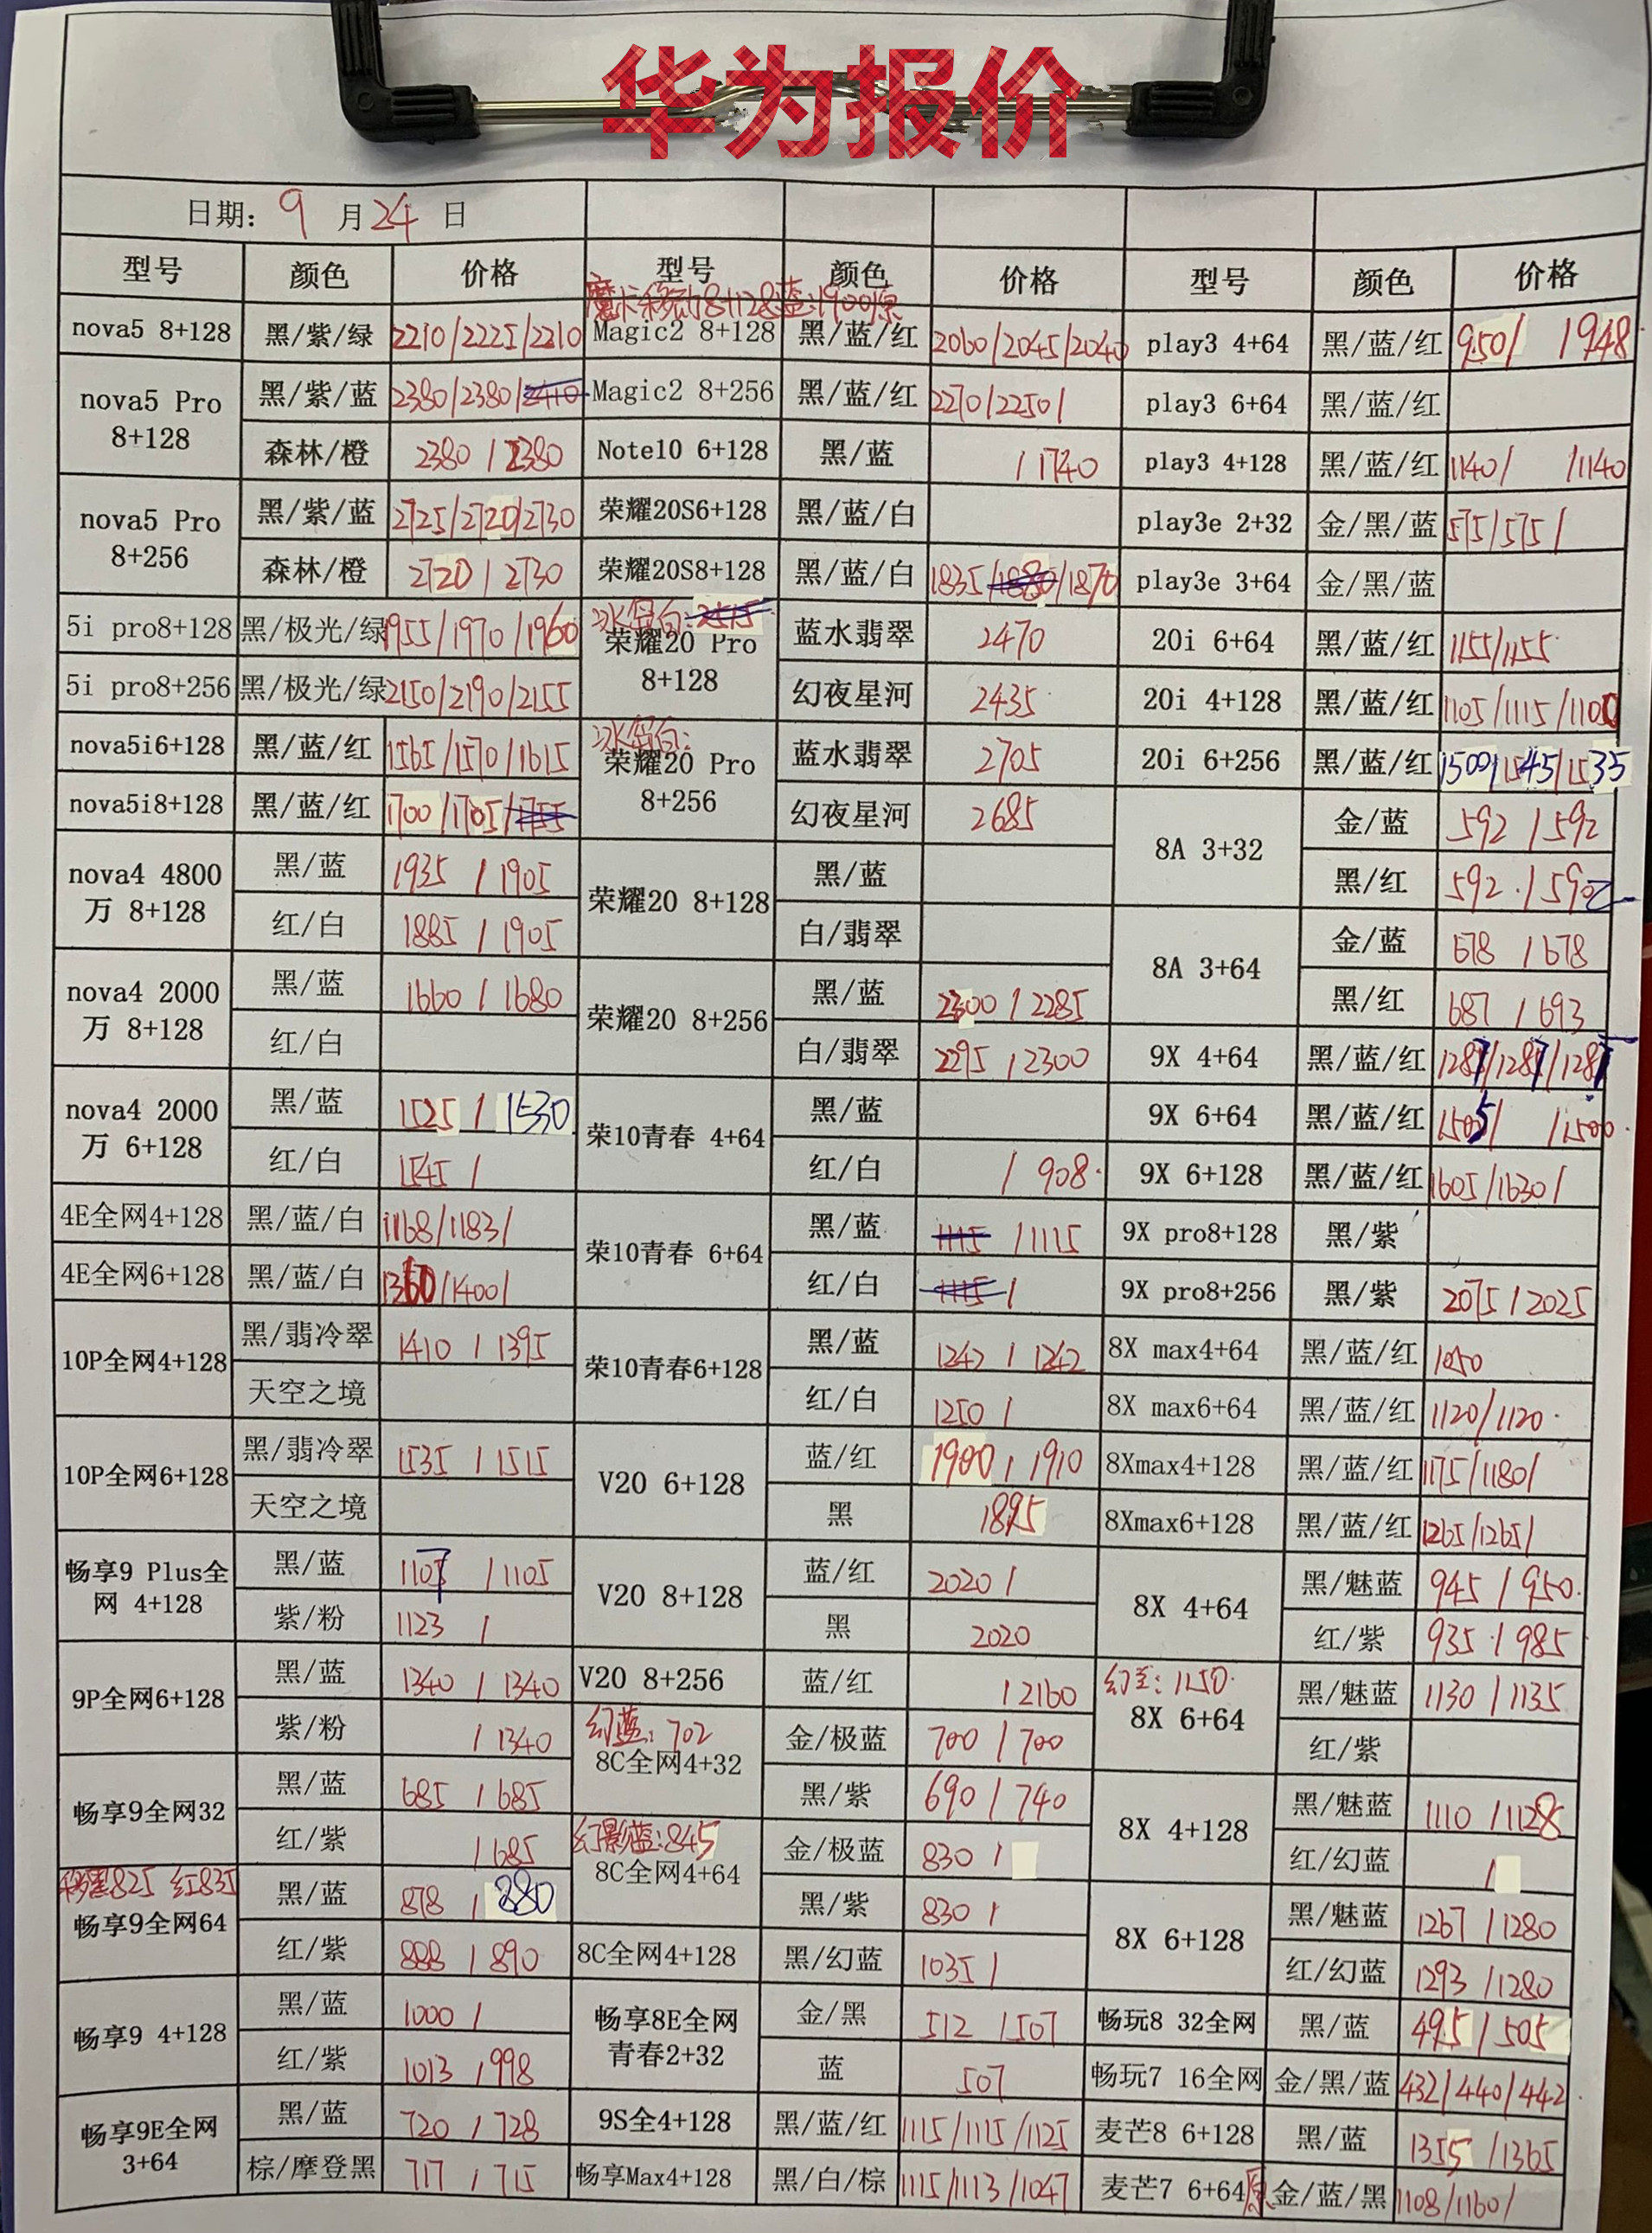 华为报价
日期: 9 月 24 日
型号 颜色 价格 型号 颜色 价格 型号 颜色 价格
魔卡移动8+128蓝:1900原
nova5 8+128 黑/紫/绿 2210/2225/2210 Magic2 8+128 黑/蓝/红 2060/2045/2040 play3 4+64 黑/蓝/红 950/ /948
nova5 Pro 8+128 黑/紫/蓝 2380/2380/2410 Magic2 8+256 黑/蓝/红 2270/2250/ play3 6+64 黑/蓝/红
森林/橙 2380/2380 Note10 6+128 黑/蓝 /1740 play3 4+128 黑/蓝/红 1140/ /1140
nova5 Pro 8+256 黑/紫/蓝 2725/2720/2730 荣耀20S6+128 黑/蓝/白 play3e 2+32 金/黑/蓝 575/575/
森林/橙 2720/2730 荣耀20S8+128 黑/蓝/白 1835/1880/1870 play3e 3+64 金/黑/蓝
5i pro8+128 黑/极光/绿 1955/1970/1960 冰岛白:2515 荣耀20 Pro 8+128 蓝水翡翠 2470 20i 6+64 黑/蓝/红 1155/1155
5i pro8+256 黑/极光/绿 2150/2190/2155 幻夜星河 2435 20i 4+128 黑/蓝/红 1105/1115/1100
nova5i6+128 黑/蓝/红 1565/1570/1615 冰岛白: 荣耀20 Pro 8+256 蓝水翡翠 2705 20i 6+256 黑/蓝/红 1500/1545/1535
nova5i8+128 黑/蓝/红 1700/1705/1755 幻夜星河 2685 8A 3+32 金/蓝 592/592
nova4 4800万 8+128 黑/蓝 1935/1905 荣耀20 8+128 黑/蓝 黑/红 592/592
红/白 1885/1905 白/翡翠 8A 3+64 金/蓝 678/678
nova4 2000万 8+128 黑/蓝 1660/1680 荣耀20 8+256 黑/蓝 2300/2285 黑/红 687/693
红/白 白/翡翠 2295/2300 9X 4+64 黑/蓝/红 1287/1287/1287
nova4 2000万 6+128 黑/蓝 1525/1530 荣10青春 4+64 黑/蓝 9X 6+64 黑/蓝/红 1505/ /1500
红/白 1545/ 红/白 /908 9X 6+128 黑/蓝/红 1605/1630/
4E全网4+128 黑/蓝/白 1168/1183/ 荣10青春 6+64 黑/蓝 1115/1115 9X pro8+128 黑/紫
4E全网6+128 黑/蓝/白 1360/1400/ 红/白 1115/ 9X pro8+256 黑/紫 2075/2025
10P全网4+128 黑/翡冷翠 1410/1395 荣10青春6+128 黑/蓝 1242/1242 8X max4+64 黑/蓝/红 1050
天空之境 红/白 1250/ 8X max6+64 黑/蓝/红 1120/1120
10P全网6+128 黑/翡冷翠 1535/1515 V20 6+128 蓝/红 1900/1910 8Xmax4+128 黑/蓝/红 1175/1180/
天空之境 黑 1895 8Xmax6+128 黑/蓝/红 1265/1265/
畅享9 Plus全网 4+128 黑/蓝 1107/1105 V20 8+128 蓝/红 2020/ 8X 4+64 黑/魅蓝 945/950
紫/粉 1123/ 黑 2020 红/紫 935/985
9P全网6+128 黑/蓝 1340/1340 V20 8+256 蓝/红 /2160 8X 6+64 黑/魅蓝 1130/1135
紫/粉 /1340 幻蓝:702 8C全网4+32 金/极蓝 700/700 红/紫
畅享9全网32 黑/蓝 685/685 黑/紫 690/740 8X 4+128 黑/魅蓝 1110/1128
红/紫 /685 幻影蓝:845 8C全网4+64 金/极蓝 830/ 红/幻蓝 /
移黑825 红835 畅享9全网64 黑/蓝 878/880 黑/紫 830/ 8X 6+128 黑/魅蓝 1267/1280
红/紫 888/890 8C全网4+128 黑/幻蓝 1035/ 红/幻蓝 1293/1280
畅享9 4+128 黑/蓝 1000/ 畅享8E全网青春2+32 金/黑 512/507 畅玩8 32全网 黑/蓝 495/505
红/紫 1013/998 蓝 507 畅玩7 16全网 金/黑/蓝 432/440/442
畅享9E全网 3+64 黑/蓝 720/728 9S全4+128 黑/蓝/红 1115/1115/1125 麦芒8 6+128 黑/蓝 1355/1365
棕/摩登黑 717/715 畅享Max4+128 黑/白/棕 1115/1113/1047 麦芒7 6+64原 金/蓝/黑 1108/1160/